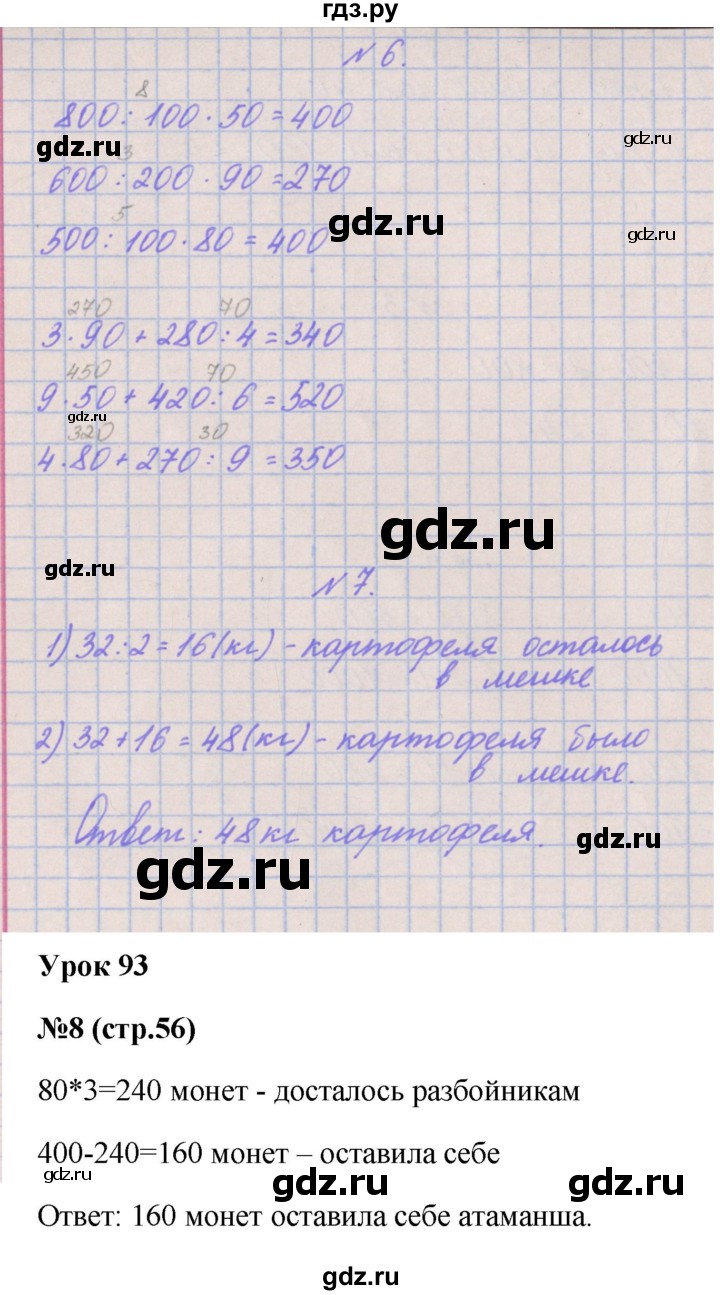 гдз.ру
N 6.
8
800 : 100 · 50 = 400
gdz.ru
gdz.ru
3
600 : 200 · 90 = 270
gdz.ru
5
500 : 100 · 80 = 400
gdz.ru
270 70
3 · 90 + 280 : 4 = 340
450 70
9 · 50 + 420 : 6 = 520
gdz.ru
320 30
4 · 80 + 270 : 9 = 350
gdz.ru
gdz.ru
N 7.
1) 32 : 2 = 16 (кг) - картофеля осталось
в мешке
2) 32 + 16 = 48 (кг) - картофеля было
в мешке.
Ответ: 48 кг картофеля.
gdz.ru
gdz.ru
Урок 93
№8 (стр.56)
80*3=240 монет - досталось разбойникам
400-240=160 монет – оставила себе
gdz.ru
gdz.ru
gdz.ru
Ответ: 160 монет оставила себе атаманша.
gdz.ru